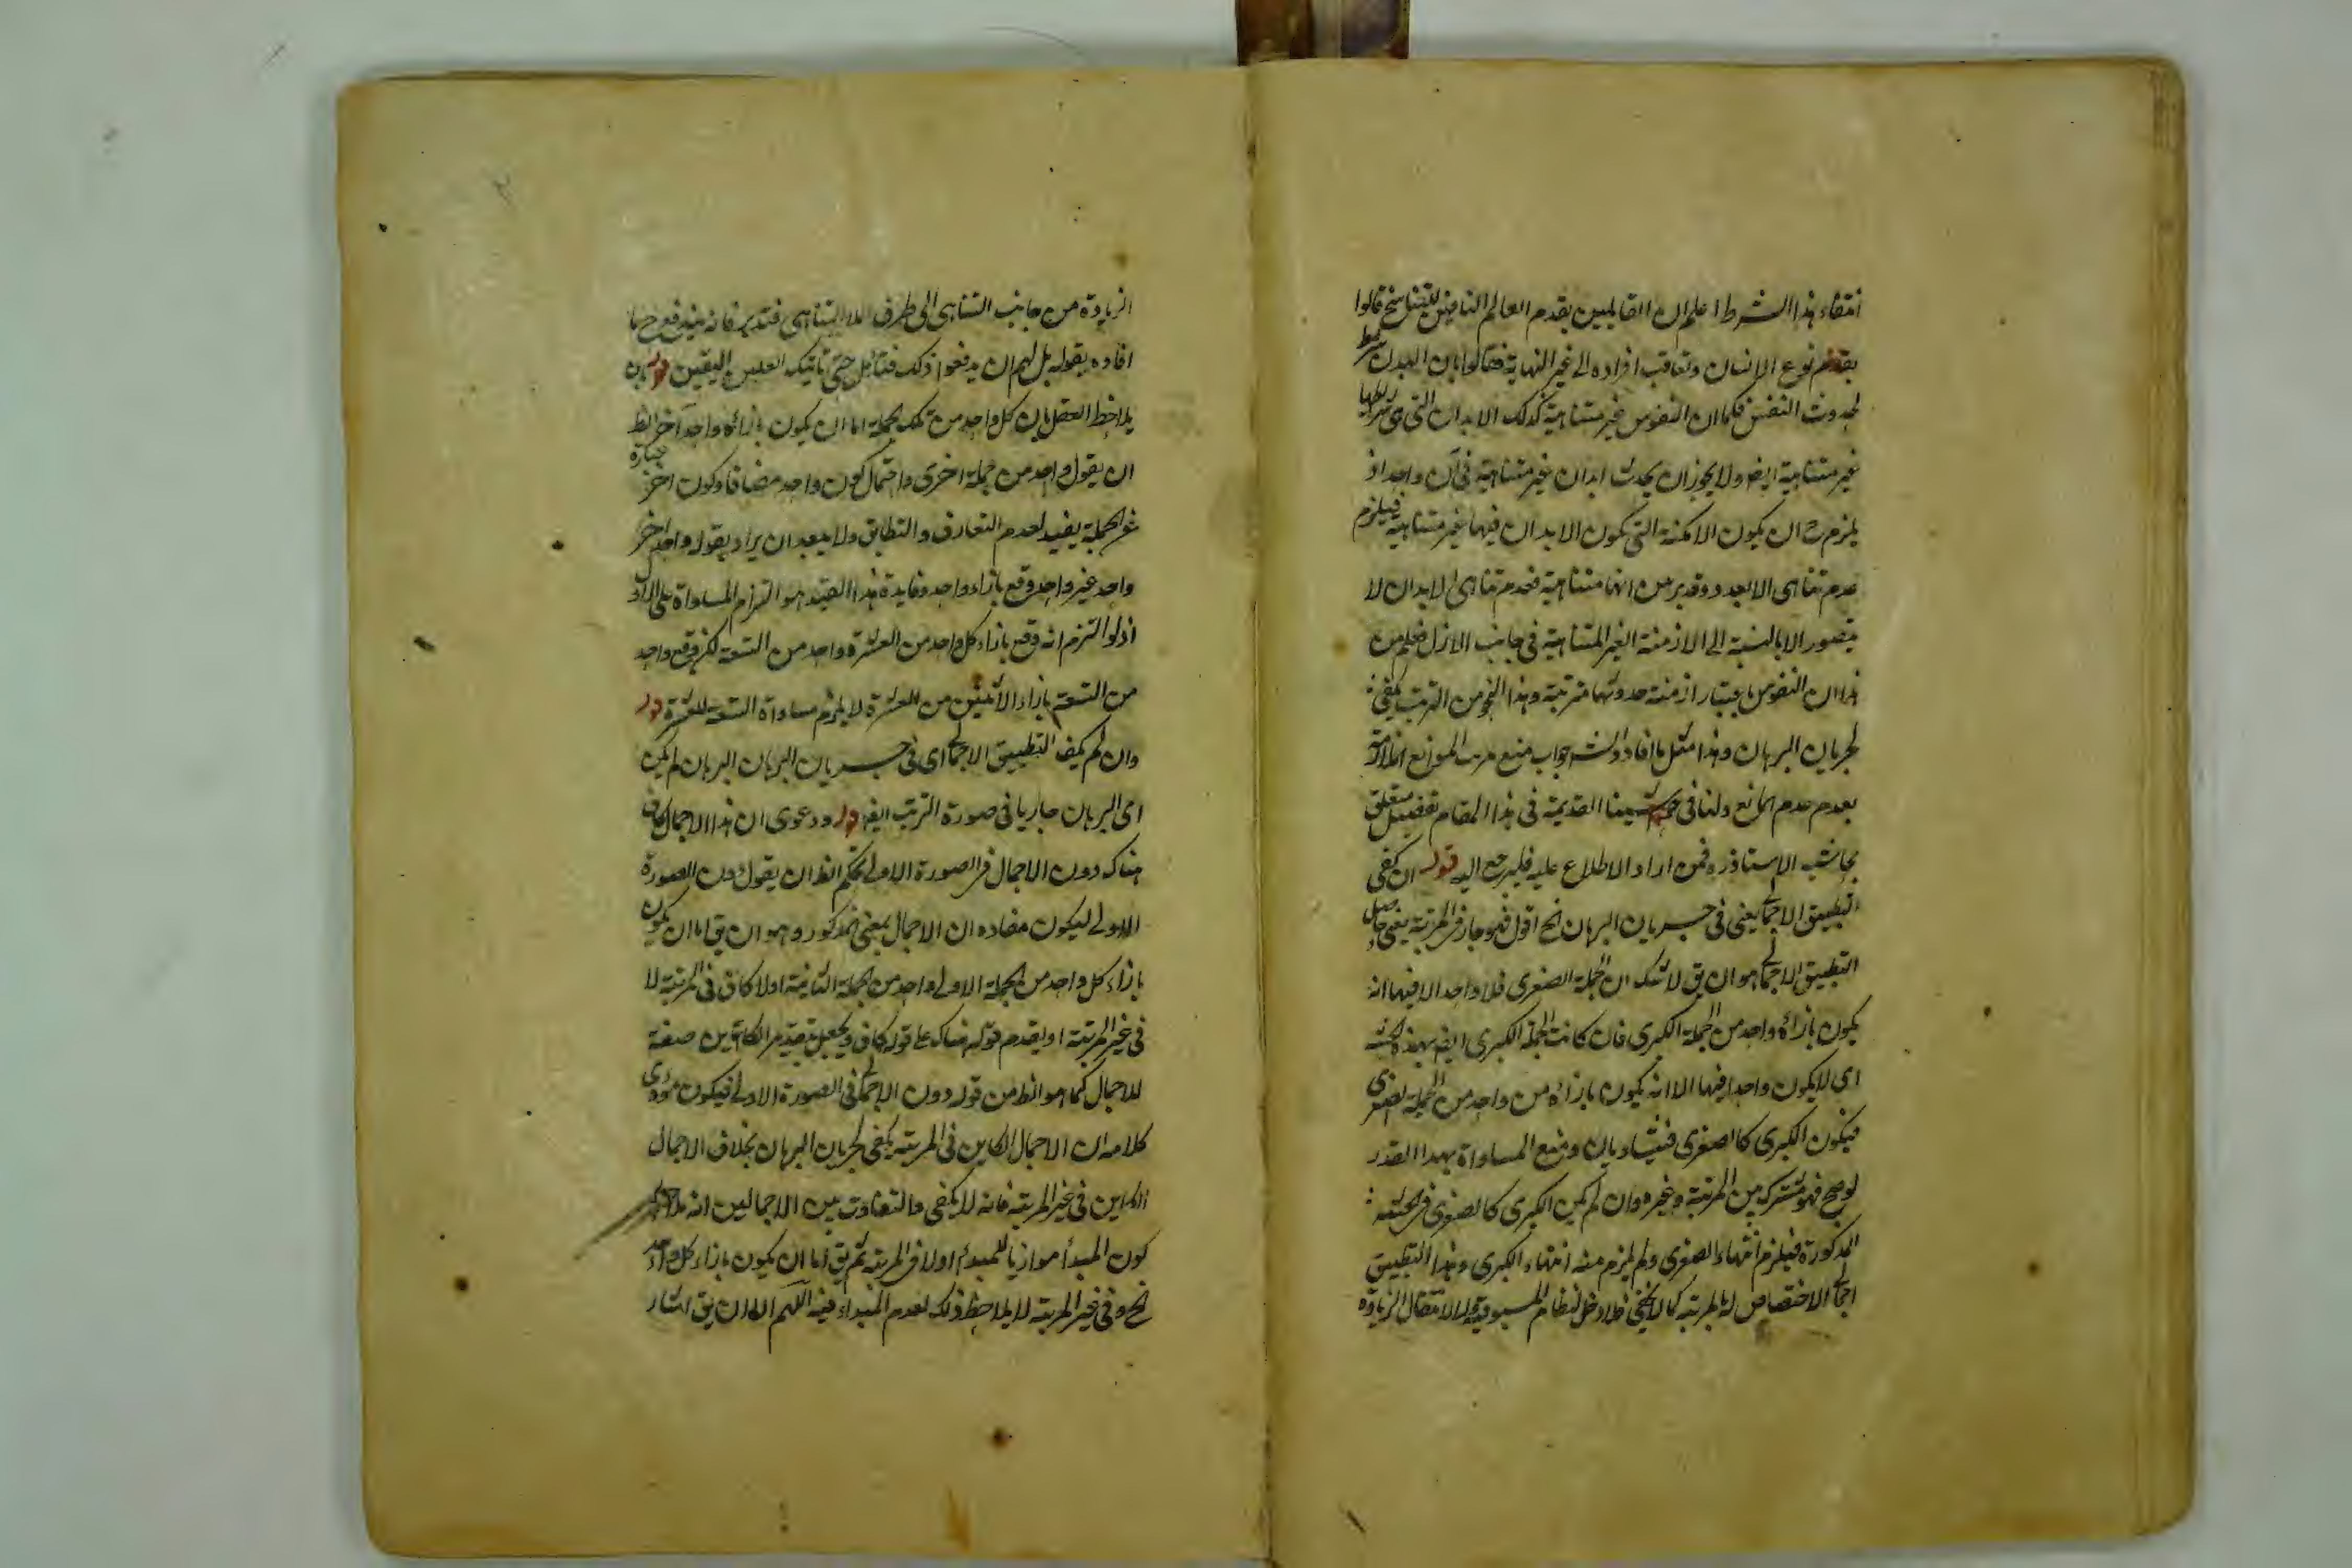 انتفاء هذا الشرط اعلم ان القايلين بقدم العالم النافين للتناسخ قالوا
بقدم نوع الانسان وتعاقب افراده الى غير النهاية فقالوا بان البدن شرط
لحدوث النفس فكما ان النفوس غير متناهية كذلك الابدان التى هى شرطها
غير متناهية ايض ولا يجوز ان يحدث ابدان غير متناهية فى آن واحد اذ
يلزم ح ان يكون الامكنة التى تكون الابدان فيها غير متناهية فيلزم
عدم تناهى الابعاد وقد برهن انها متناهية فعدم تناهى الابدان لا
يتصور الا بالنسبة الى الازمنة الغير المتناهية فى جانب الازل فعلم من
هذا ان النفوس باعتبار ازمنة حدوثها مترتبة وهذا النحو من الترتب يكفى
لجريان البرهان وهذا مثل ما افاده الش جواب منع
بعدم عدم المانع ولنا فى القديمة فى هذا المقام تفصيل متعلق
بحاشية الاستاذ ره فمن اراد الاطلاع عليه فليرجع اليه قوله ان كفى
التطبيق الاجمالى يعنى فى جريان البرهان الخ اقول فهو جار فى غير المرتبة يعنى حاصل
التطبيق الاجمالى هو ان يق لا شك ان الجملة الصغرى فلا واحد الا فيها انه
يكون بازائه واحد من الجملة الكبرى فان كانت الجملة الكبرى ايض بهذه الحيثية
اى لا يكون واحد فيها الا انه يكون بازائه من واحد من الجملة الصغرى
فيكون الكبرى كالصغرى فيتساويان ومنع المساواة بهذا القدر
لو صح فهو مشترك بين المرتبة وغيره وان لم يكن الكبرى كالصغرى فى الحيثية
المذكورة فيلزم انتهاء الصغرى ولم يلزم منه انتهاء الكبرى وهذا التطبيق
اجمالى لا اختصاص له بالمرتبة كما لا يخفى فلا دخل لنظام المسبوقية لا لانتقال الزيادة
الزيادة من جانب التناهى الى طرف اللاتناهى فتدبر فانه يندفع ح ما
افاده بقوله بل لهم ان يدفعوا ذلك فتأمل حتى تاتيك اليقين قوله بان
يلاحظ العقل بان كل واحد من تلك الجملة اما ان يكون بازائه واحد آخر الظ
ان يقول واحد من جملة اخرى واحتمال كون واحد مضافا وكون آخر عبارة
عن الجملة بعيد لعدم التعارف والتطابق ولا يبعد ان يراد بقوله واحد آخر
واحد غير واحد وقع بازاء واحد وفايدة هذا القيد هو التزام المساواة على
اذ لو التزم انه وقع بازاء كل واحد من العشرة واحد من التسعة لكن وقع واحد
من التسعة بازاء الاثنين من العشرة لا يلزم مساواة التسعة للعشرة قوله
وان لم يكف التطبيق الاجمالى اى فى جريان البرهان البرهان لم يكن
اى البرهان جاريا فى صورة الترتب ايض قوله ودعوى ان هذا الاجمال كاف
هناك دون الاجمال فى الصورة الاولى تحكم الظ ان يقول دون الصورة
الاولى ليكون مفاده ان الاجمال بمعنى المذكور وهو ان يق اما ان يكون
بازاء كل واحد من الجملة الاولى واحد من الجملة الثانية او لا كاف فى المرتبة لا
فى غير المرتبة او يقدم قوله هناك على قوله كاف ويجعل بتقدير الكاين صفة
للاجمال كما هو الظ من قوله دون الاجمالى فى الصورة الاولى فيكون مؤدى
كلامه ان الاجمال الكاين فى المرتبة يكفى لجريان البرهان بخلاف الاجمال
الكاين فى غير المرتبة فانه لا يكفى والتفاوت بين الاجمالين انه
كون المبدأ موازيا للمبدء اولا فى المرتبة ثم يق اما ان يكون بازاء كل واحد
الخ وفى غير المرتبة لا يلاحظ ذلك لعدم المبداء فيه اللهم الا ان يق اشار